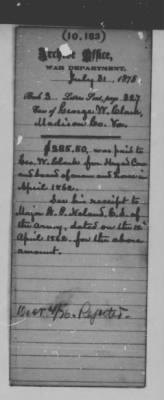 (10,183)
Archive Office,
WAR DEPARTMENT,
July 31, 1878
Book 3 Letters Sent, page 327
Case of George W. Clark,
Madison Co. Va.
$285.50, was paid to
Geo. W. Clark for
and board of men and horses in
April 1862.
See his receipt to
Major B. P. Noland, C.S. of
the Army, dated on the
April 1862. for the above
amount.
Rejected.